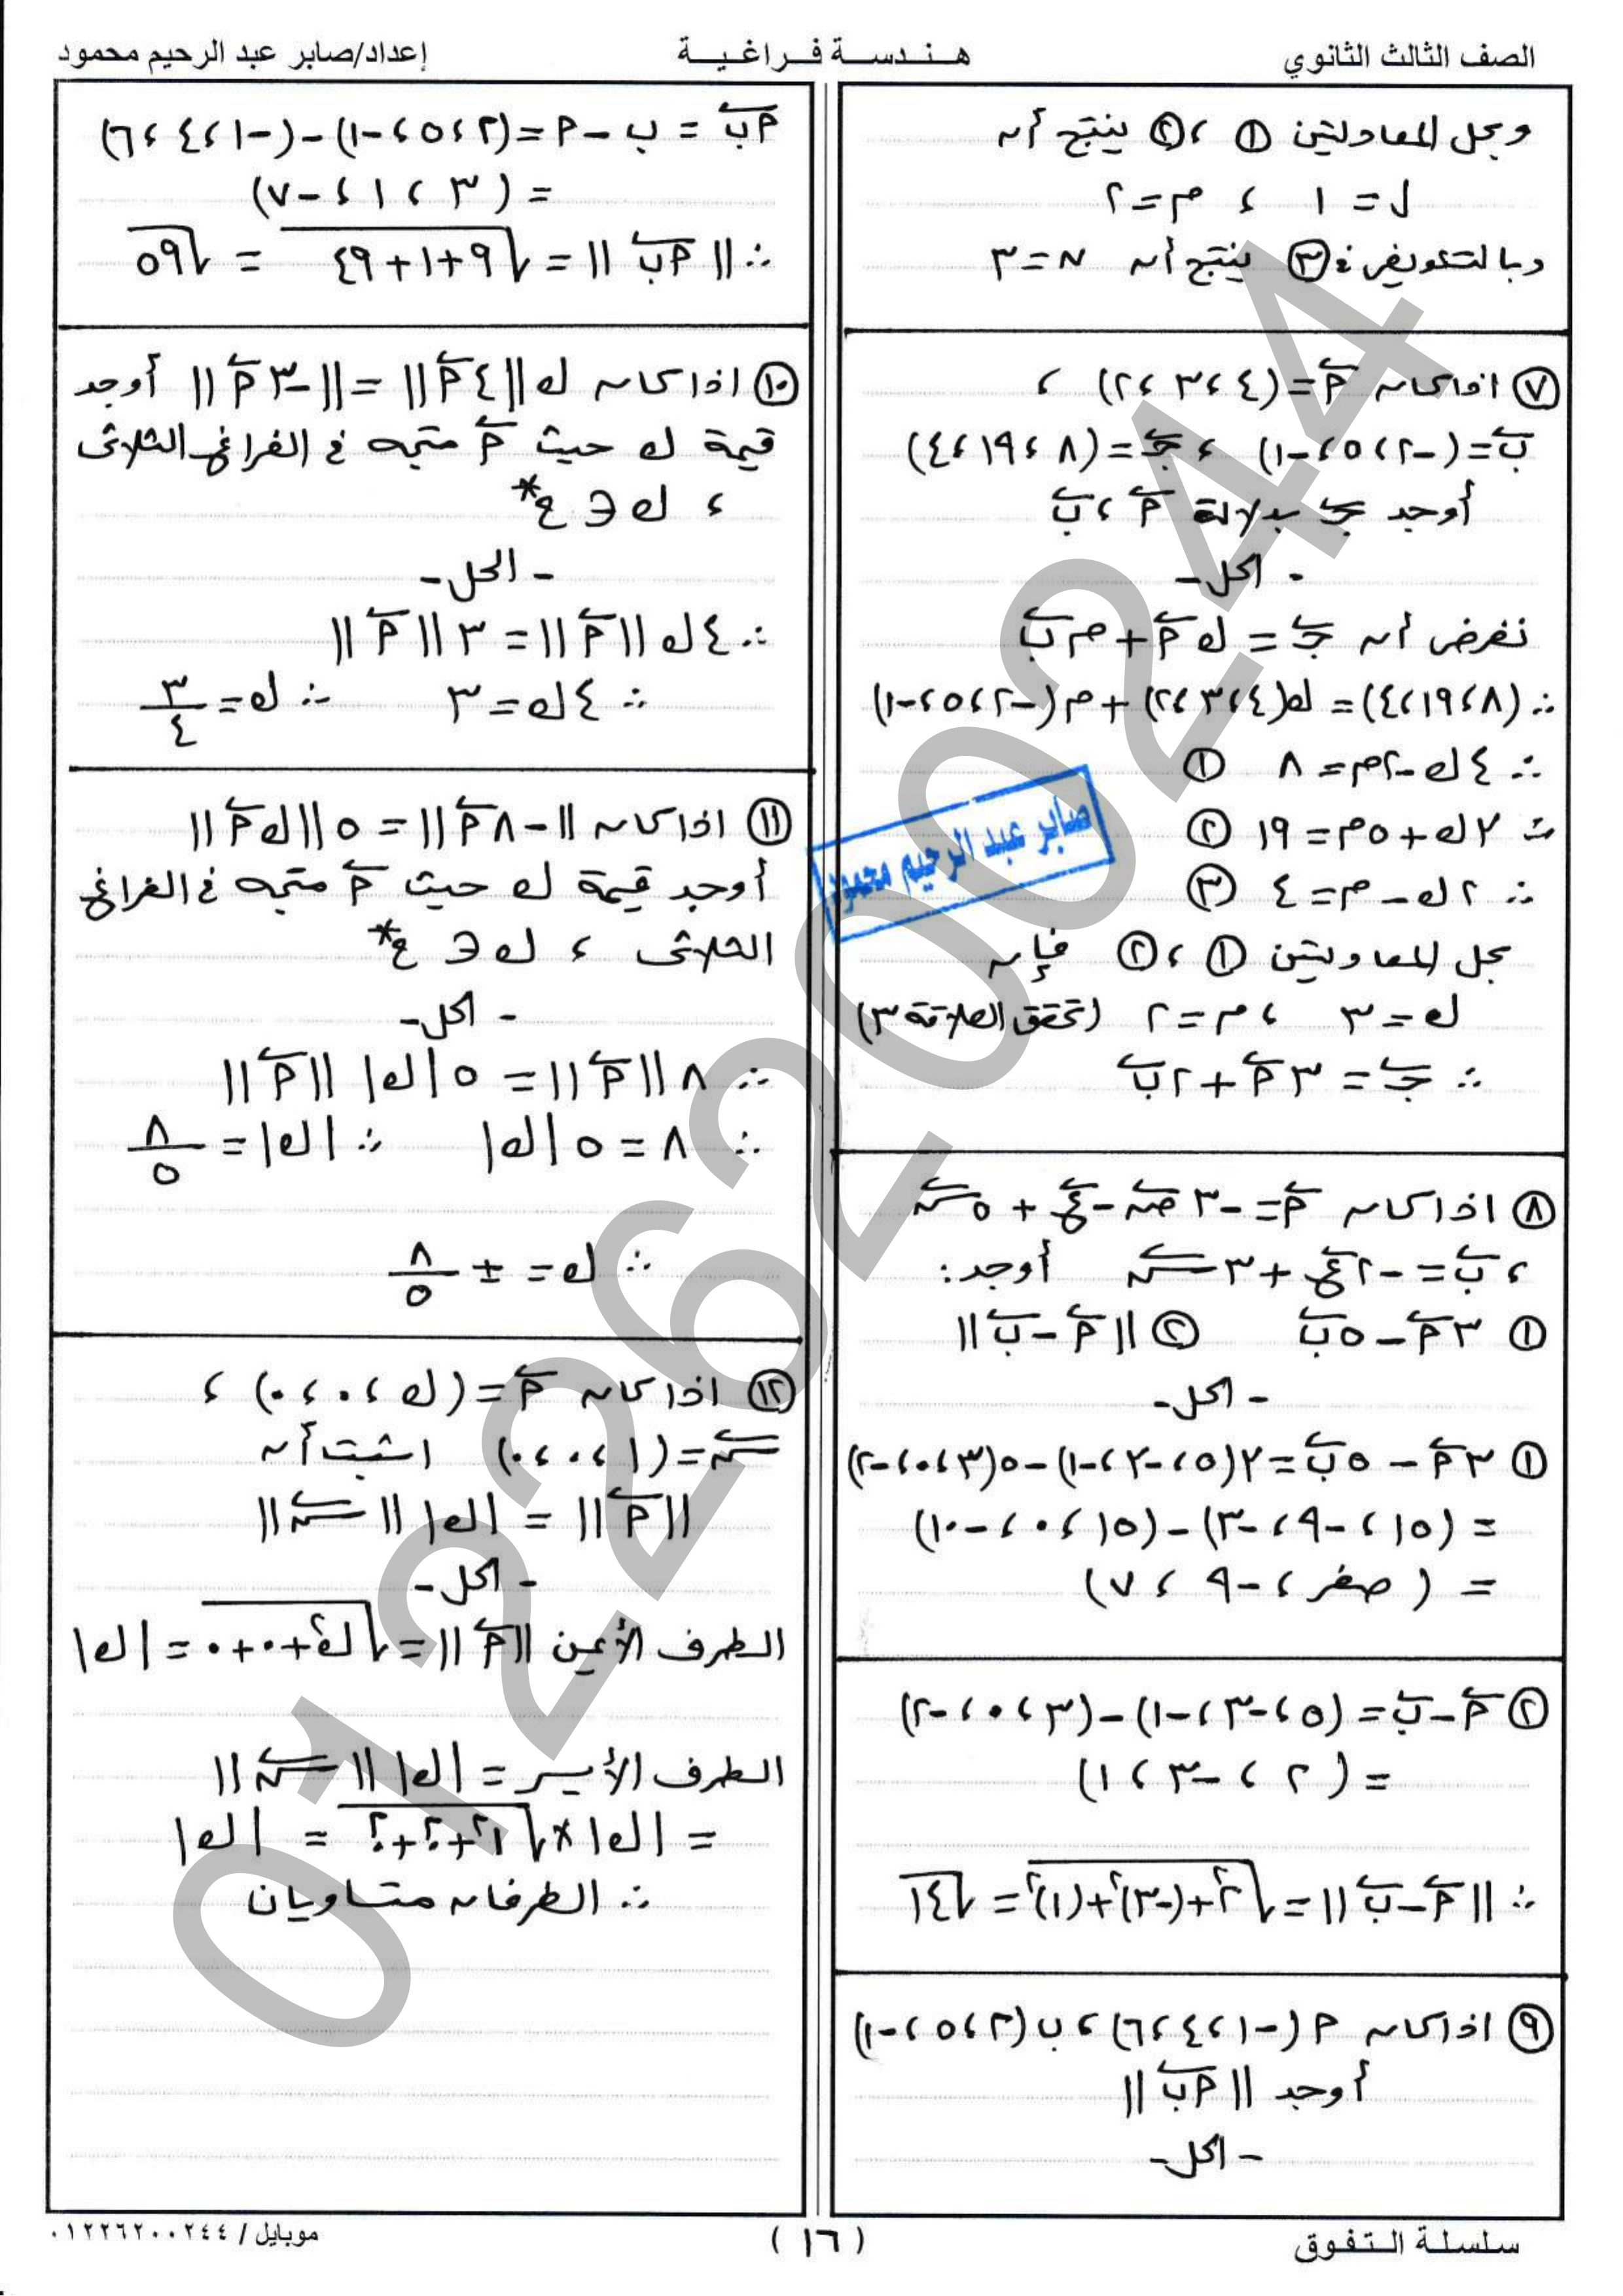 الصف الثالث الثانوي
هندسة فراغية
إعداد/صابر عبد الرحيم محمود
وبحل المعادلتين ①، ② ينتج أن
ل = ١ ، م = ٢
وبالتعويض في ③ ينتج أن ن = ٣
⑦ إذا كان أ = (٤، ٣، ٢) ،
ب = (-٢، ٥، -١) ، جـ = (٨، ١٩، ٤)
أوجد جـ بدلالة أ ، ب
- الحل -
نفرض أن جـ = ك أ + م ب
∴ (٨، ١٩، ٤) = ك(٤، ٣، ٢) + م(-٢، ٥، -١)
∴ ٤ك - ٢م = ٨ ①
∴ ٣ك + ٥م = ١٩ ②
∴ ٢ك - م = ٤ ③
بحل المعادلتين ①، ② فإن
ك = ٣ ، م = ٢ (تحقق العلاقة ٣)
∴ جـ = ٣أ + ٢ب
صابر عبد الرحيم محمود
⑧ اذا كان أ = -٣ص - ع + ٥س
، ب = -٢ع + ٣س أوجد:
① ٣أ - ٥ب ② ||أ - ب||
- الحل -
① ٣أ - ٥ب = ٣(٥، -٣، -١) - ٥(٣، ٠، -٢)
= (١٥، -٩، -٣) - (١٥، ٠، -١٠)
= (صفر، -٩، ٧)
② أ - ب = (٥، -٣، -١) - (٣، ٠، -٢)
= (٢، -٣، ١)
∴ ||أ - ب|| = √(٢² + (-٣)² + (١)²) = √١٤
⑨ اذا كان أ (-١، ٤، ٦) ، ب (٢، ٥، -١)
أوجد ||أب||
- الحل -
أب = ب - أ = (٢، ٥، -١) - (-١، ٤، ٦)
= (٣، ١، -٧)
∴ ||أب|| = √(٩+١+٤٩) = √٥٩
⑩ اذا كان ك||٤أ|| = ||-٣أ|| أوجد
قيمة ك حيث أ متجه في الفراغ الثلاثى
، ك ∈ ح*
- الحل -
∴ ٤ك||أ|| = ٣||أ||
∴ ٤ك = ٣ ∴ ك = ٣/٤
⑪ اذا كان ||-٨أ|| = ٥||ك أ||
أوجد قيمة ك حيث أ متجه في الفراغ
الثلاثى ، ك ∈ ح*
- الحل -
∴ ٨||أ|| = ٥|ك| ||أ||
∴ ٨ = ٥|ك| ∴ |ك| = ٨/٥
∴ ك = ± ٨/٥
⑫ اذا كان أ = (ك، ٠، ٠) ،
س = (١، ٠، ٠) اثبت أن
||أ|| = |ك| ||س||
- الحل -
الطرف الأيمن ||أ|| = √(ك²+٠+٠) = |ك|
الطرف الأيسر = |ك| ||س||
= |ك| × √(١²+٠²+٠²) = |ك|
∴ الطرفان متساويان
01226200244
سلسلة التفوق
( ١٦ )
موبايل / ٠١٢٢٦٢٠٠٢٤٤